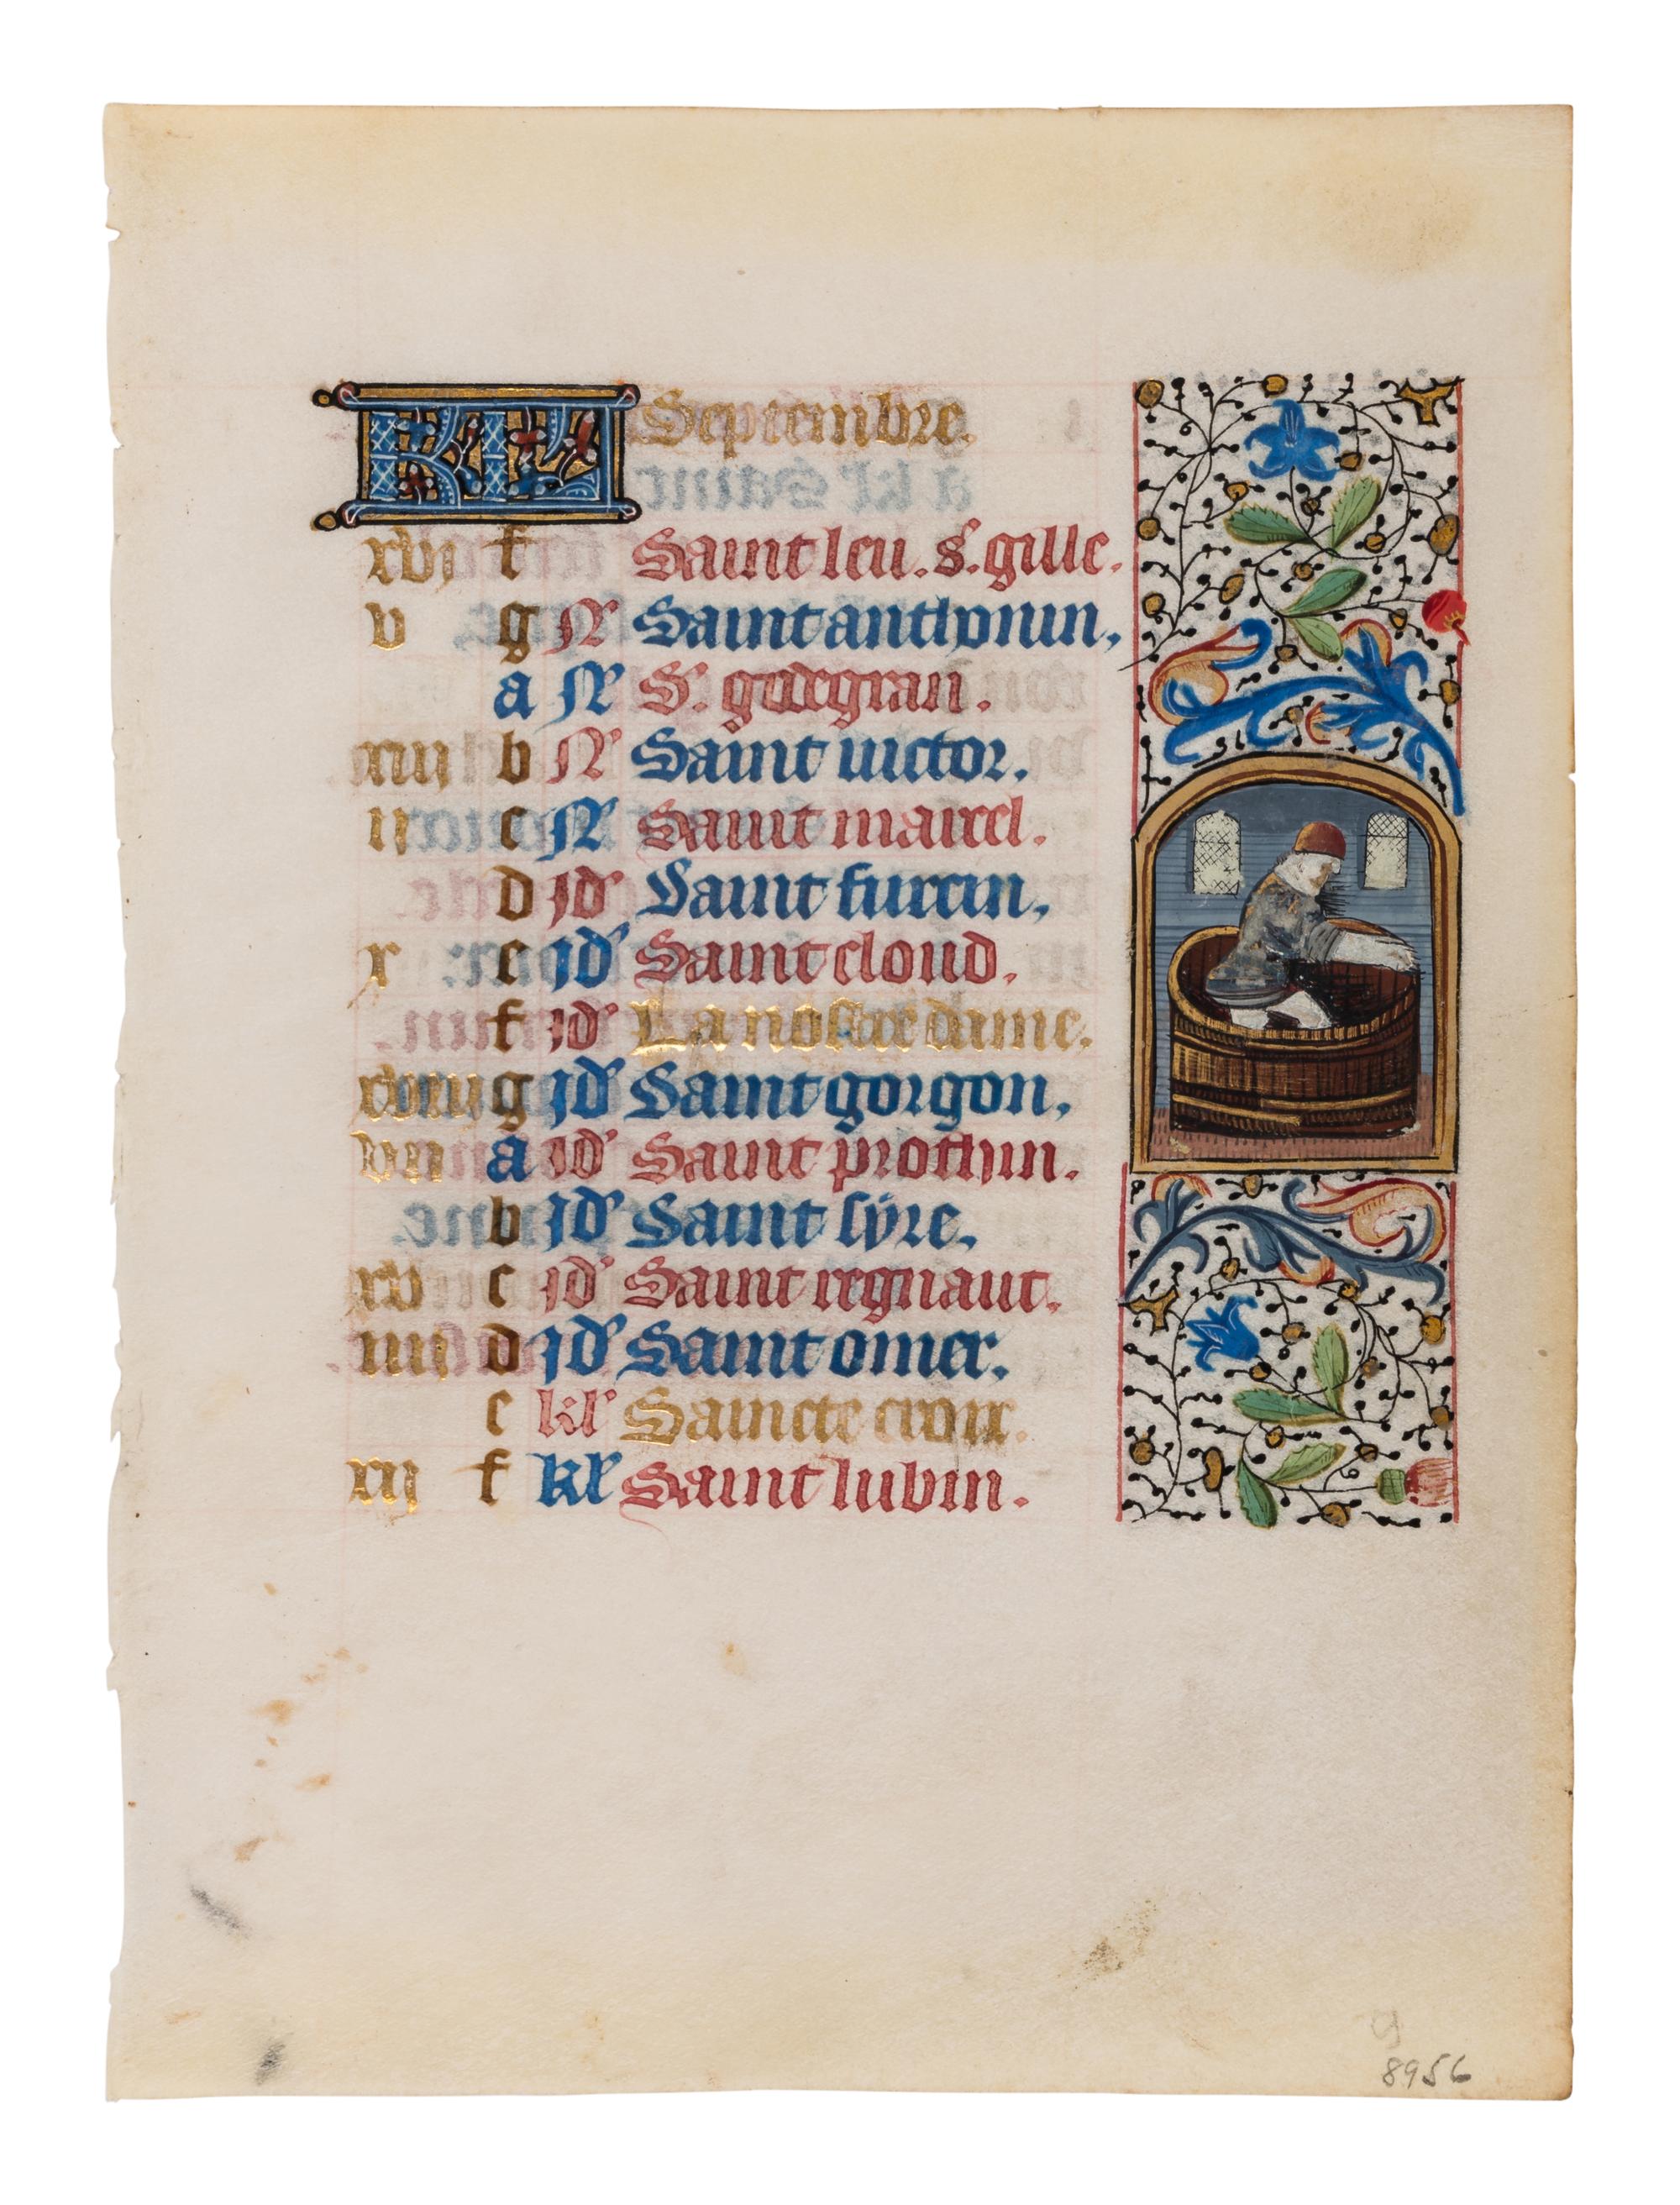 KL Septembre.
xvj f Saint leu. s. gille.
v g N Saint anthonin,
a N S. godegran.
xiij b N Saint victor.
ij c N Saint marcel.
d jd' Saint furcin,
x e jd' Saint cloud.
f jd' La nostre dame.
xviij g jd' Saint gorgon,
vij a jd' Saint prothin.
b jd' Saint syre,
xv c jd' Saint regnaut.
iiij d jd' Saint omer.
e kl' Saincte croix.
xij f kl' Saint lubin.
8956